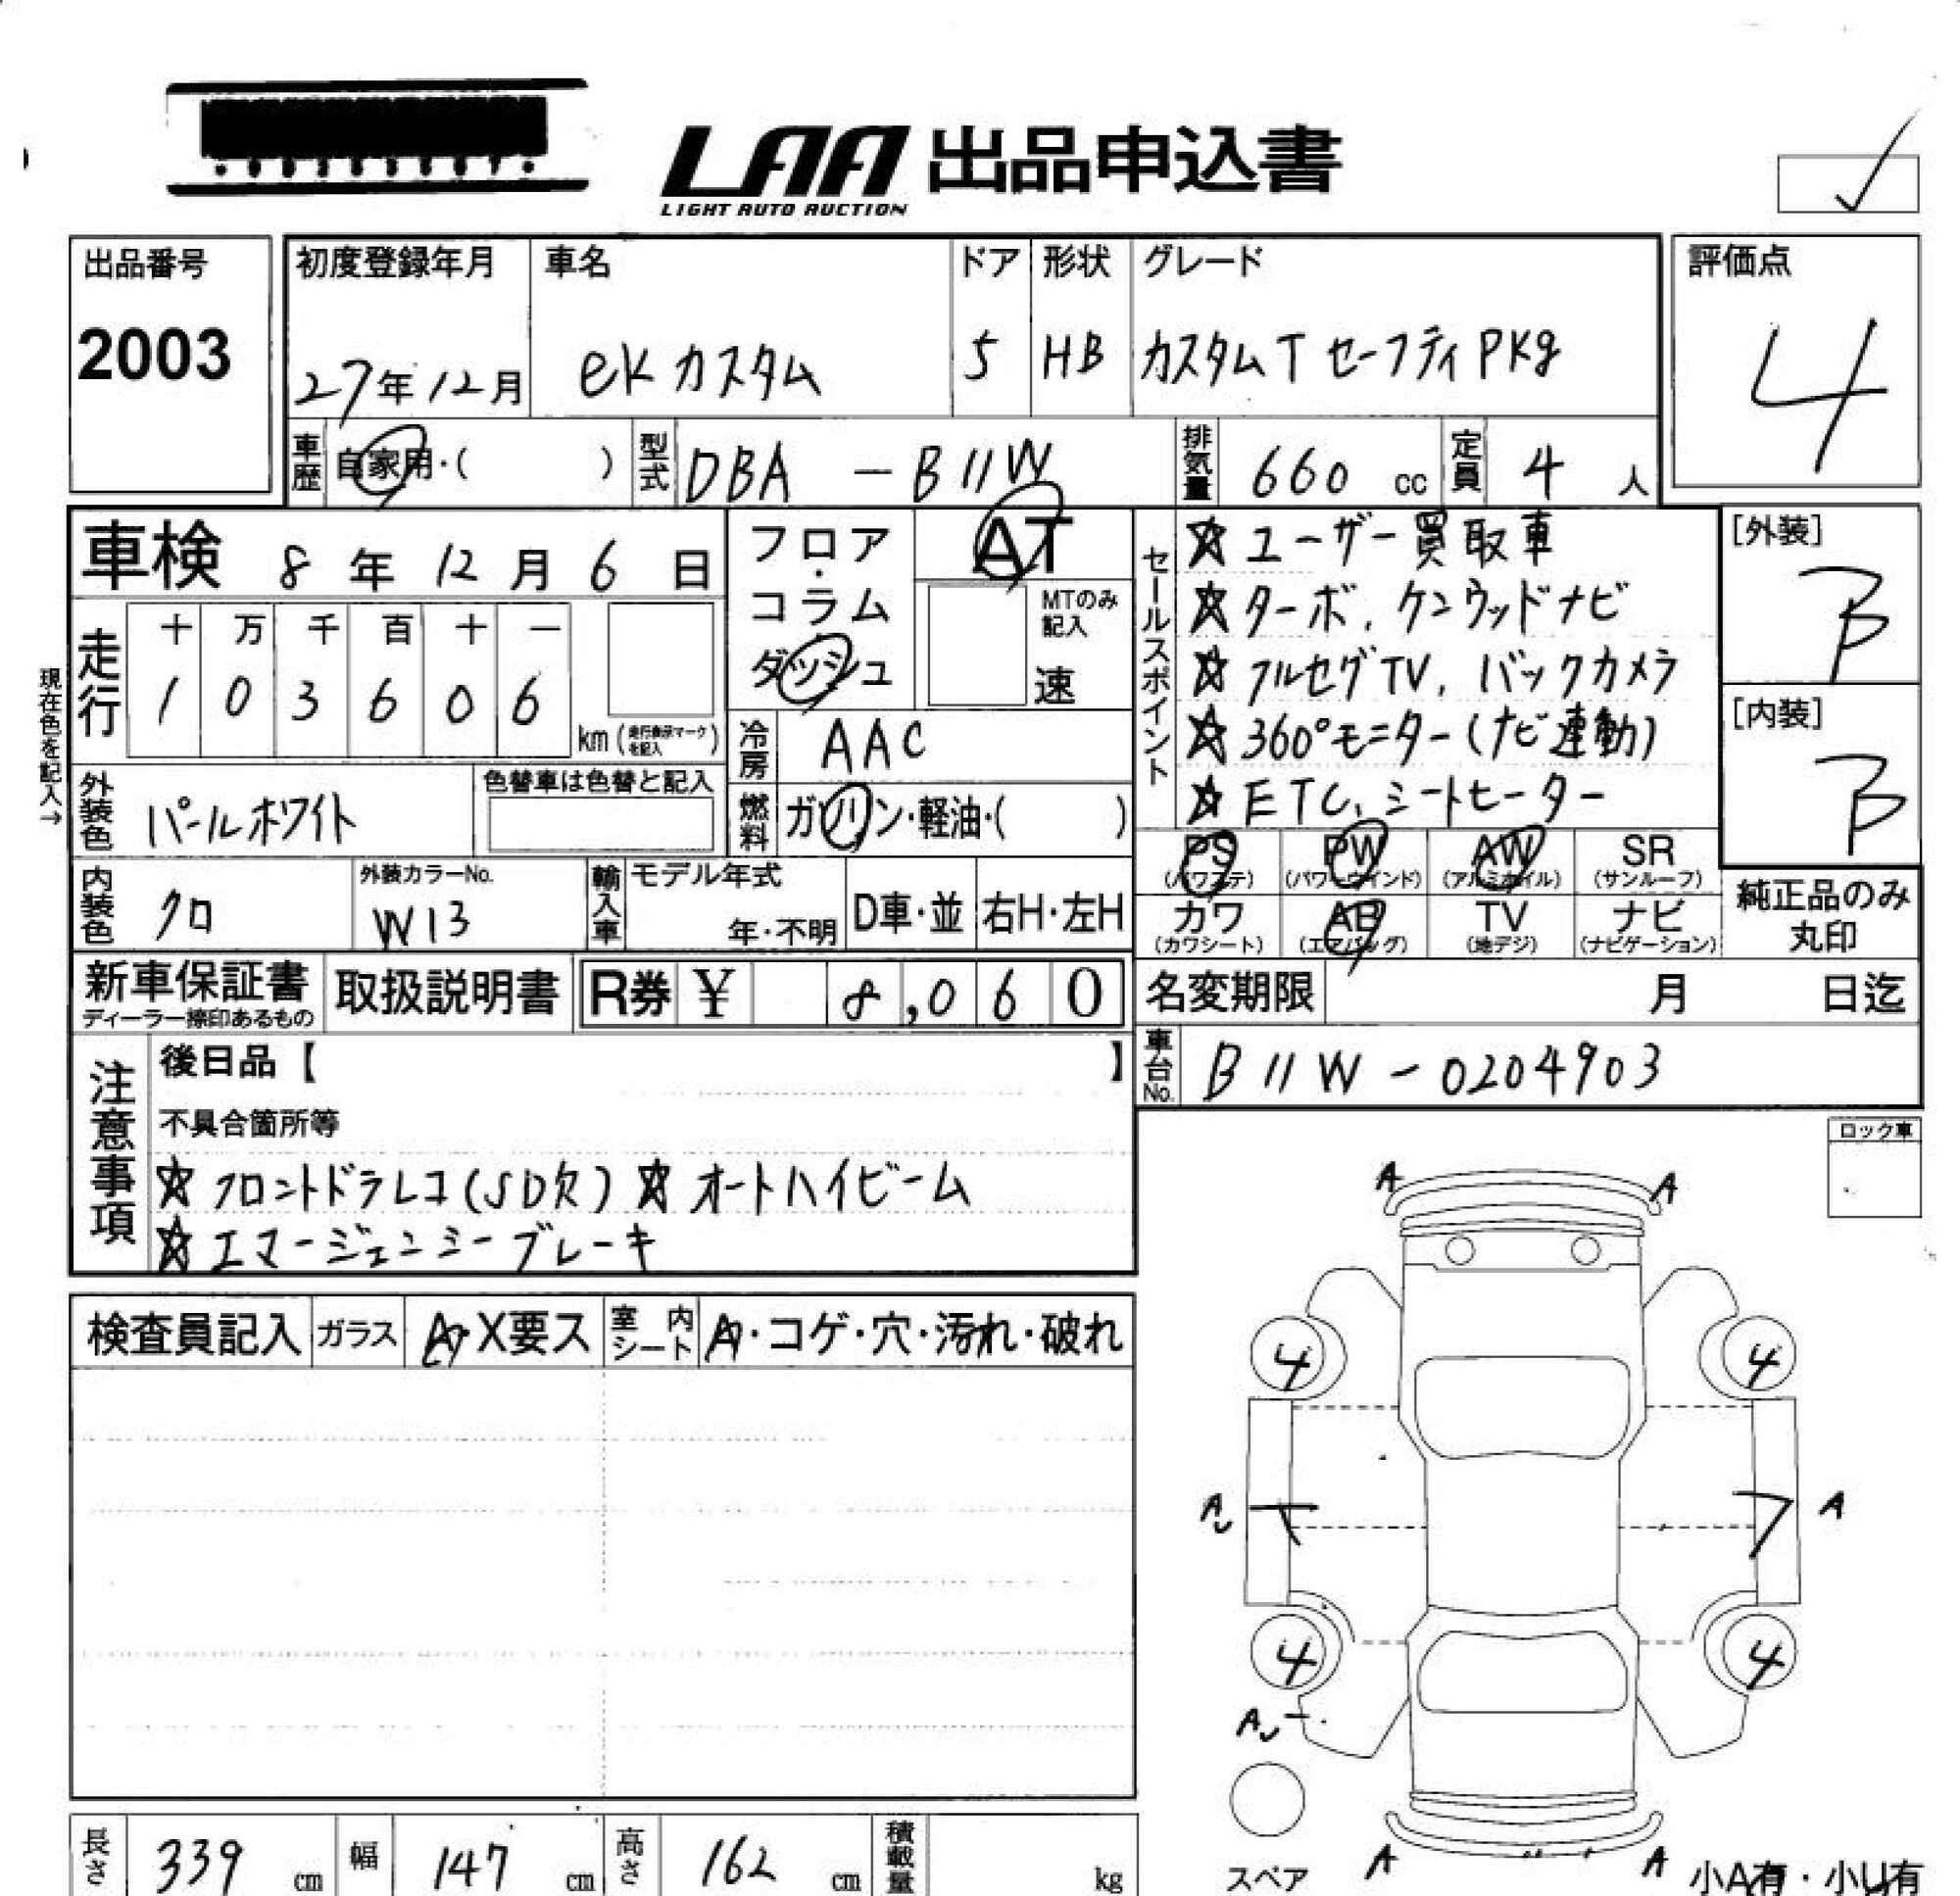 LAA 出品申込書
LIGHT AUTO AUCTION
出品番号
2003
初度登録年月
27年12月
車名
eKカスタム
ドア
5
形状
HB
グレード
カスタムT セーフティPKg
評価点
4
車歴 自家用・( )
型式 DBA - B11W
排気量 660 cc
定員 4 人
車検 8年12月6日
現在色を記入→
走行
十 万 千 百 十 一
1 0 3 6 0 6
km (走行表示マークを記入)
フロア・コラム・ダッシュ
AT
MTのみ記入
速
冷房 AAC
燃料 ガソリン・軽油・( )
セールスポイント
☆ユーザー買取車
☆ターボ、ケンウッドナビ
☆フルセグTV、バックカメラ
☆360°モニター(ナビ連動)
☆ETC、シートヒーター
[外装]
B
[内装]
B
外装色 パールホワイト
色替車は色替と記入
内装色 クロ
外装カラーNo.
W13
輸入車
モデル年式
年・不明
D車・並
右H・左H
PS (パワステ)
PW (パワーウインド)
AW (アルミホイル)
SR (サンルーフ)
カワ (カワシート)
AB (エアバッグ)
TV (地デジ)
ナビ (ナビゲーション)
純正品のみ丸印
新車保証書
ディーラー捺印あるもの
取扱説明書
R券 ¥ 8,060
名変期限 月 日迄
車台No. B11W-0204903
注意事項
後日品【 】
不具合箇所等
☆フロントドラレコ(SD欠) ☆オートハイビーム
☆エマージェンシーブレーキ
ロック車
検査員記入
ガラス A・X要ス
室内シート A・コゲ・穴・汚れ・破れ
A A
4 4
A A
4 4
A
スペア
A A
小A有・小U有
長さ 339 cm
幅 147 cm
高さ 162 cm
積載量 kg